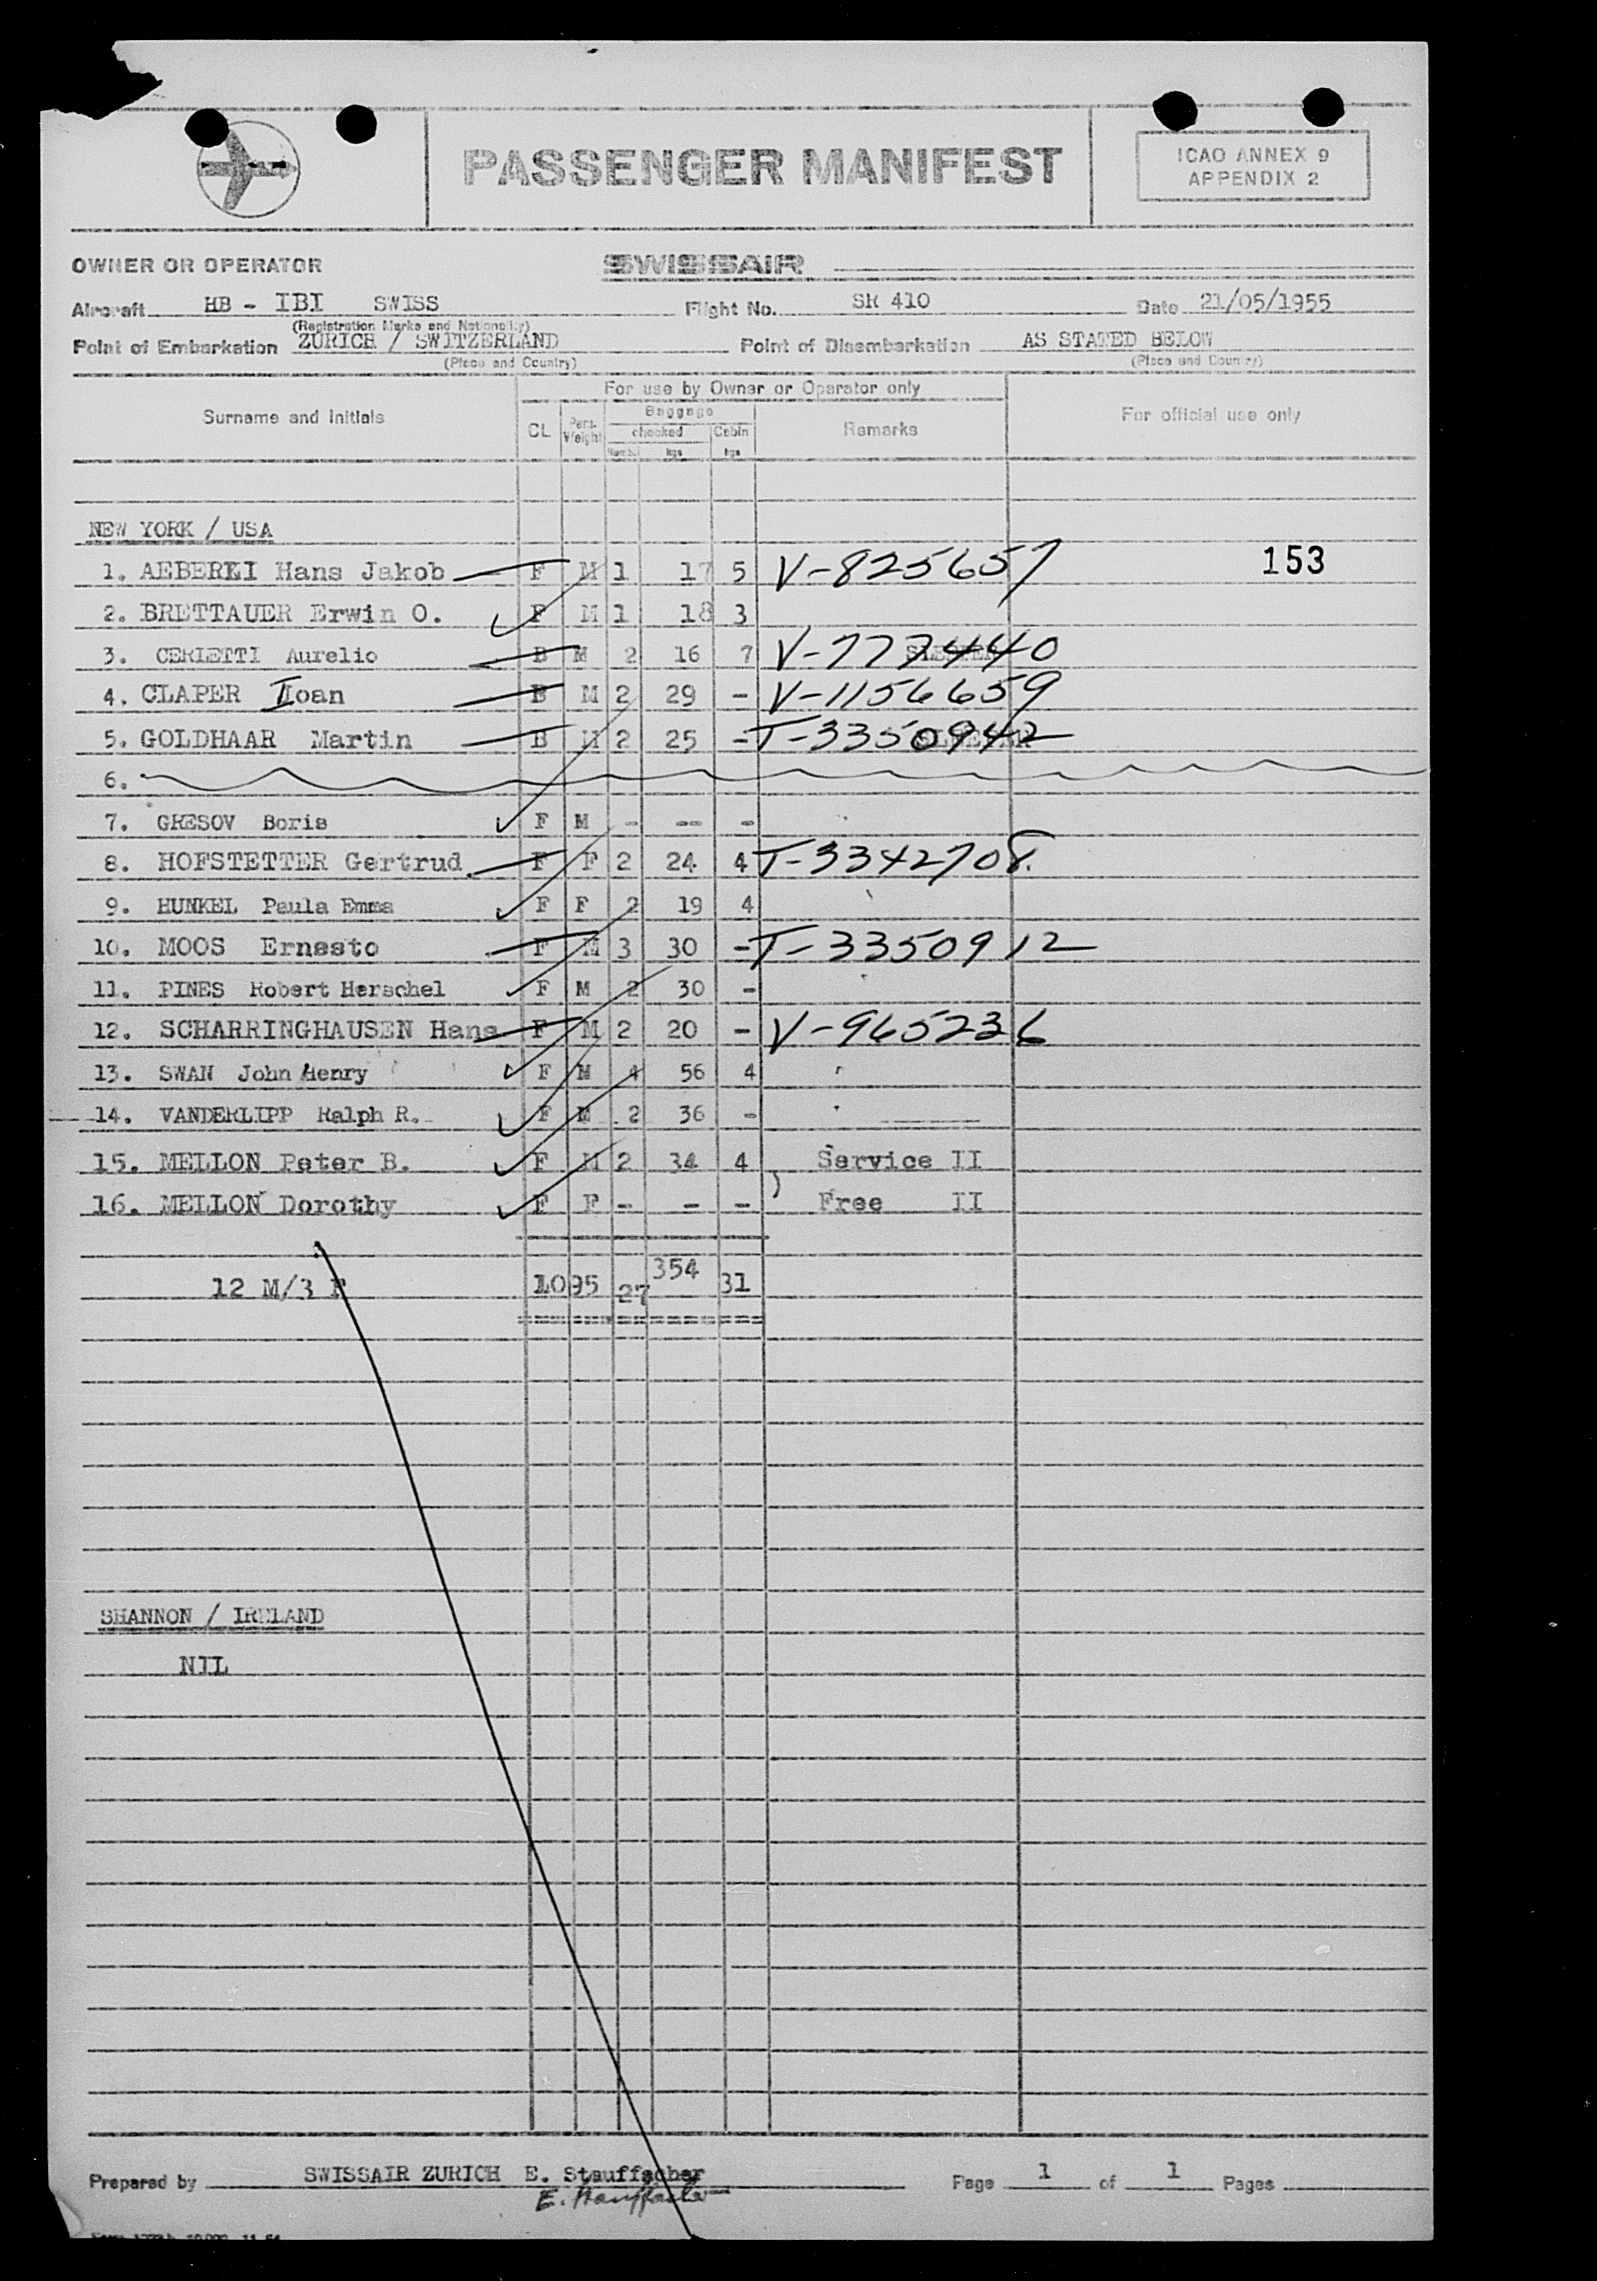 PASSENGER MANIFEST
ICAO ANNEX 9
APPENDIX 2
OWNER OR OPERATOR SWISSAIR
Aircraft HB - IBI SWISS Flight No. SR 410 Date 21/05/1955
(Registration Marks and Nationality)
Point of Embarkation ZURICH / SWITZERLAND Point of Disembarkation AS STATED BELOW
(Place and Country) (Place and Country)
For use by Owner or Operator only
Surname and Initials CL Pers. Weight Baggage checked Cabin Remarks For official use only
Numb. kgs kgs
NEW YORK / USA
1. AEBERLI Hans Jakob F M 1 17 5 V-825657 153
2. BRETTAUER Erwin O. F M 1 18 3
3. CERLETTI Aurelio B M 2 16 7 V-777440
4. CLAPER Ioan B M 2 29 - V-1156659
5. GOLDHAAR Martin B M 2 25 - T-3350942
6.
7. GRESOV Boris F M - -- -
8. HOFSTETTER Gertrud F F 2 24 4 T-3342708.
9. HUNKEL Paula Emma F F 2 19 4
10. MOOS Ernesto F M 3 30 - T-3350912
11. PINES Robert Herschel F M 2 30 -
12. SCHARRINGHAUSEN Hans F M 2 20 - V-965236
13. SWAN John Henry F M 4 56 4
14. VANDERLIPP Ralph R. F M 2 36 -
15. MELLON Peter B. F M 2 34 4 Service II
16. MELLON Dorothy F F - - - Free II
12 M/3 F 1095 27 354 31
SHANNON / IRELAND
NIL
Prepared by SWISSAIR ZURICH E. Stauffacher Page 1 of 1 Pages
E. Stauffacher